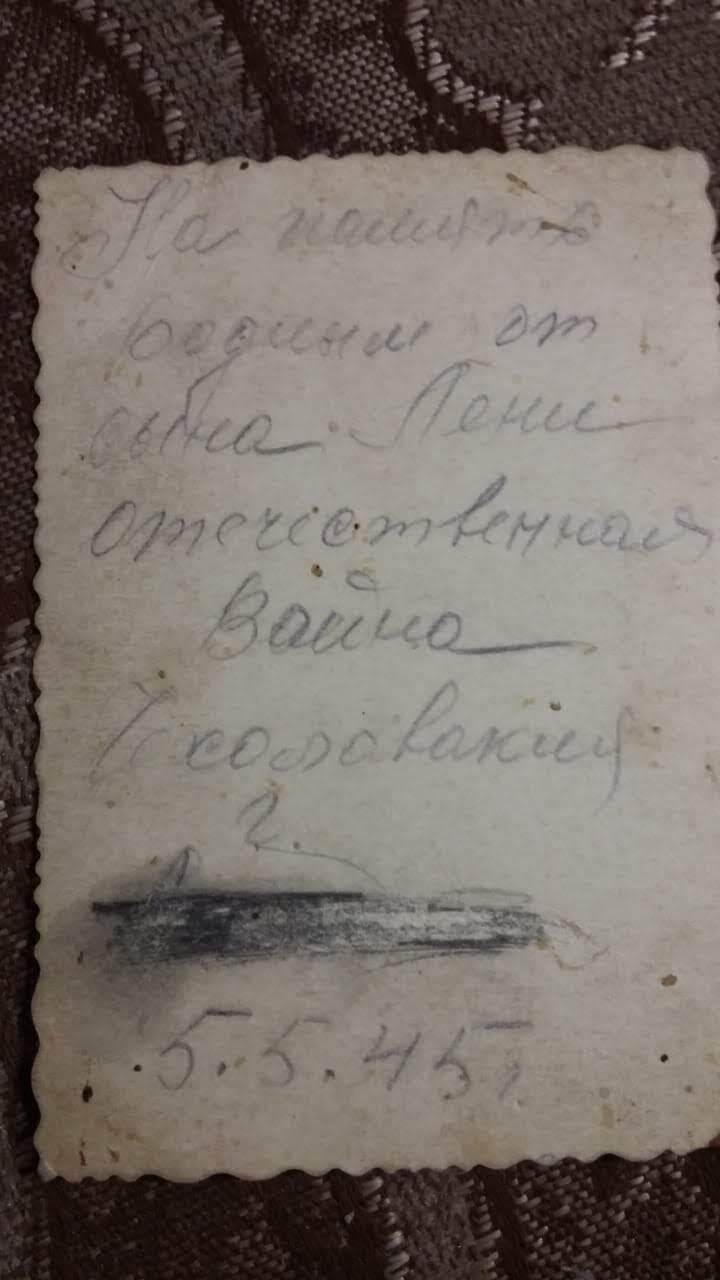 На память
родным от
сына Лени
отечественная
Война
Чехословакия
г.
5.5.45г